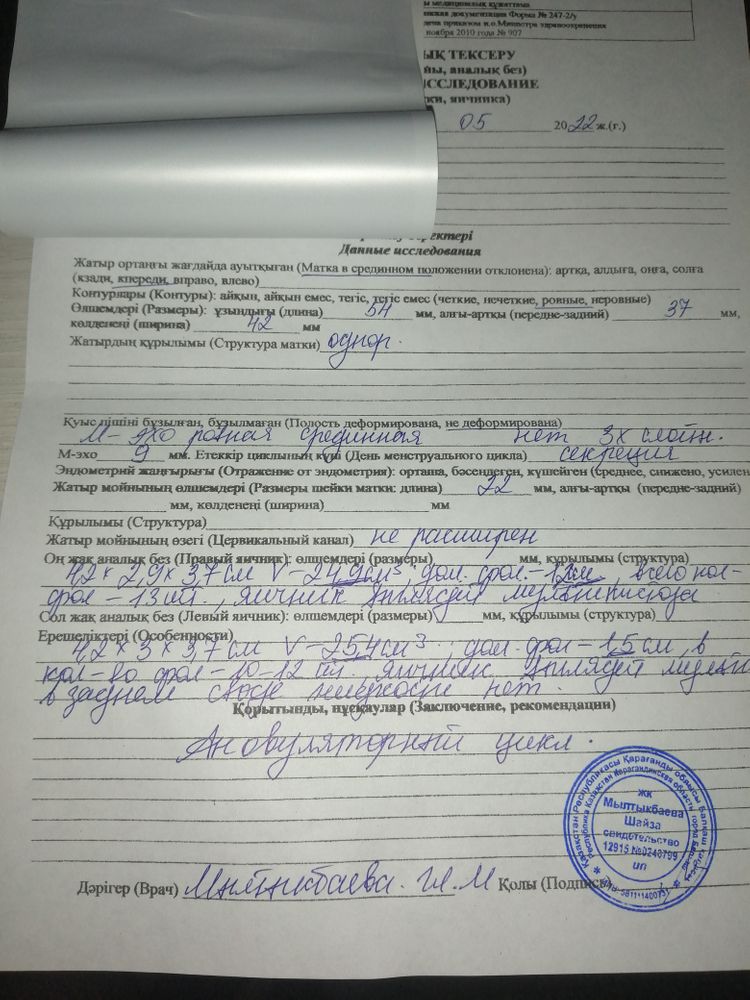 ы медициналық құжаттама
нская документация Форма № 247-2/у
дена приказом и.о.Министра здравоохранения
ноября 2010 года № 907
ЫҚ ТЕКСЕРУ
йы, аналық без)
ИССЛЕДОВАНИЕ
ки, яичника)
05 2022 ж.(г.)
деректері
Данные исследования
Жатыр ортаңғы жағдайда ауытқыған (Матка в срединном положении отклонена): артқа, алдыға, оңға, солға
(кзади, кпереди, вправо, влево)
Контурлары (Контуры): айқын, айқын емес, тегіс, тегіс емес (четкие, нечеткие, ровные, неровные)
Өлшемдері (Размеры): ұзындығы (длина) 54 мм, алғы-артқы (передне-задний) 37 мм,
көлденеңі (ширина) 42 мм
Жатырдың құрылымы (Структура матки) однор.
Қуыс пішіні бұзылған, бұзылмаған (Полость деформирована, не деформирована)
М-эхо ровная срединная нет 3х слойн.
М-эхо 9 мм. Етеккір циклының күні (День менструального цикла) секреция
Эндометрий жаңғырығы (Отражение от эндометрия): орташа, бәсеңдеген, күшейген (среднее, снижено, усилен
Жатыр мойнының өлшемдері (Размеры шейки матки: длина) 22 мм, алғы-артқы (передне-задний)
мм, көлденеңі (ширина) мм
Құрылымы (Структура)
Жатыр мойнының өзегі (Цервикальный канал) не расширен
Оң жақ аналық без (Правый яичник): өлшемдері (размеры) мм, құрылымы (структура)
4,2 х 2,9 х 3,7 см V-24,9 см³, дом. фол.-12мм, всего кол-
фол-13 шт., яичник выглядит мультикистоза
Сол жақ аналық без (Левый яичник): өлшемдері (размеры) мм, құрылымы (структура)
Ерешеліктері (Особенности)
4,2 х 3 х 3,7 см V-25,4 см³, дом. фол-1,5 см, в
кол-во фол-10-12 шт., яичник выглядит мульти
в заднем своде жидкости нет.
Қорытынды, нұсқаулар (Заключение, рекомендации)
Ановуляторный цикл.
Дәрігер (Врач) Мылтыкбаева. Ш.М Қолы (Подпись)
Қазақстан Республикасы Қарағанды облысы Балқаш қаласы
Республика Казахстан Карагандинская область город Балхаш
ЖК
Мылтыкбаева
Шайза
свидетельство
12915 №0240799
ИП